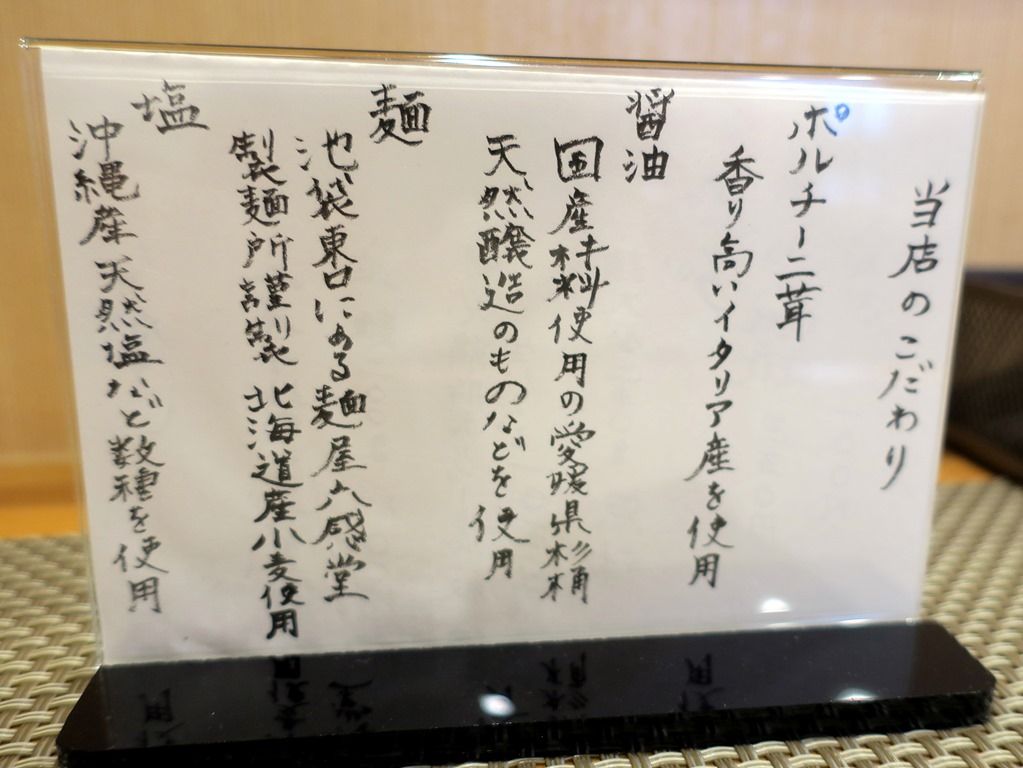 当店のこだわり
ポルチーニ茸
香り高いイタリア産を使用
醤油
国産材料使用の愛媛県杉桶
天然醸造のものなどを使用
麺
池袋東口にある麺屋六感堂
製麺所謹製 北海道産小麦使用
塩
沖縄産天然塩など数種を使用